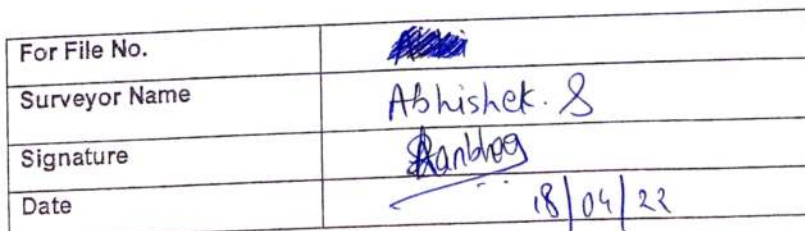 For File No.
Surveyor Name Abhishek. S
Signature
Date 18/04/22